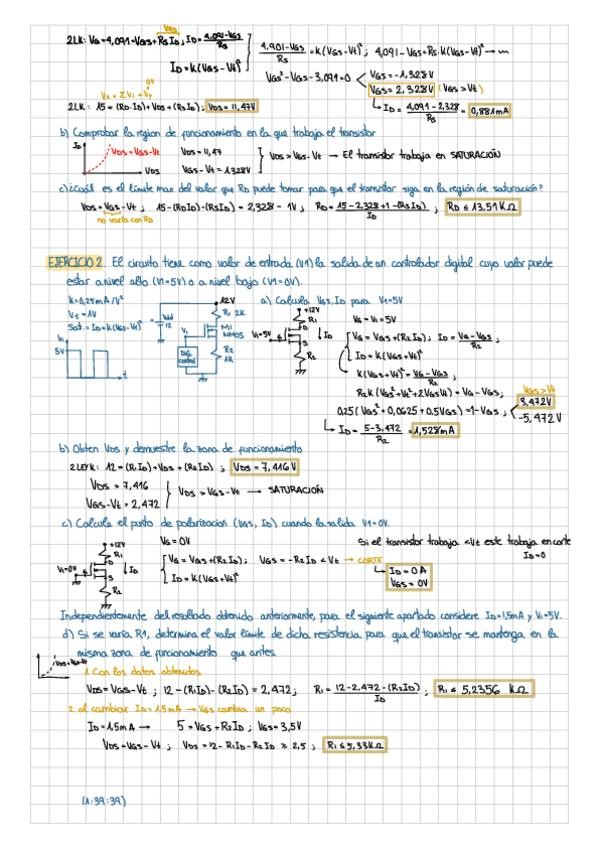 VRs
2LK: VG = 4,091 = VGS + RS ID; ID = (4,091 - VGS)/RS
ID = K(VGS - Vt)²
(4,901 - VGS)/RS = K(VGS - Vt)²; 4,091 - VGS = RS·K(VGS - Vt)² →
VGS² - VGS - 3,091 = 0
VGS = -1,328V
VGS = 2,328V (VGS > Vt)
ID = (4,091 - 2,328)/RS = 0,881mA
0V
2LK: 15 = (RD·ID) + VDS + (RS ID); VDS = 11,47V
b) Comprobar la region de funcionamiento en la que trabaja el transistor
ID
VDS = VGS - Vt
VDS
VDS = 11,47
VGS - Vt = 1328V
VDS > VGS - Vt → El transistor trabaja en SATURACIÓN
c) ¿Cuál es el límite max del valor que RD puede tomar para que el transistor siga en la región de saturación?
VDS = VGS - Vt; 15 - (RD·ID) - (RS ID) = 2,328 - 1V; RD = (15 - 2,328 + 1 - (RS ID))/ID; RD ≤ 13,51KΩ
no varía con RD
EJERCICIO 2 El circuito tiene como valor de entrada (V1) la salida de un controlador digital cuyo valor puede
estar a nivel alto (V1=5V) o a nivel bajo (V1=0V).
K = 0,25mA/V²
Vt = 1V
Sat. = ID = K(VGS - Vt)²
V1
5V
t
Vdd
12
12V
R1 2K
M1
NMOS
R2
1K
Dig. control
a) Calcula VGS, ID para V1=5V
+12V
R1
V1=5V
G
D
S
ID
R2
VG = V1 = 5V
VG = VGS + (R2 ID); ID = (VG - VGS)/R2
ID = K(VGS + Vt)²
K(VGS + Vt)² = (VG - VGS)/R2;
R2K(VGS² + Vt² + 2VGSVt) = VG - VGS;
VGS > Vt
0.25(VGS² + 0,0625 + 0.5VGS) = 1 - VGS;
3,472V
-5,472V
ID = (5 - 3,472)/R2 = 1,528mA
b) Obten VDS y demuestre la zona de funcionamiento
2LEYK: 12 = (R1 ID) + VDS + (R2 ID); VDS = 7,416V
VDS = 7,416
VGS - Vt = 2,472
VDS > VGS - Vt → SATURACIÓN
c) Calcula el punto de polarizacion (VGS, ID) cuando la salida V1=0V.
+12V
R1
V1=0V
G
D
S
ID
R2
VG = 0V
VG = VGS + (R2 ID); VGS = -R2 ID < Vt → CORTE
ID = K(VGS + Vt)²
Si el transistor trabaja < Vt este trabaja en corte
ID = 0
ID = 0A
VGS = 0V
Independientemente del resultado obtenido anteriormente, para el siguiente apartado considere ID=1,5mA y V1=5V.
d) Si se varía R1, determina el valor límite de dicha resistencia para que el transistor se mantenga en la
misma zona de funcionamiento que antes.
VDS = VGS - Vt
1. Con los datos obtenidos
VDS = VGS - Vt; 12 - (R1 ID) - (R2 ID) = 2,472; R1 = (12 - 2,472 - (R2 ID))/ID; R1 ≤ 5,2356 KΩ
2. al cambiar ID = 1.5mA → VGS cambia un poco
ID = 1.5mA → 5 = VGS + R2 ID; VGS = 3,5V
VDS = VGS - Vt; VDS = 12 - R1 ID - R2 ID ≥ 2,5; R1 ≤ 5,33KΩ
(1:39:39)